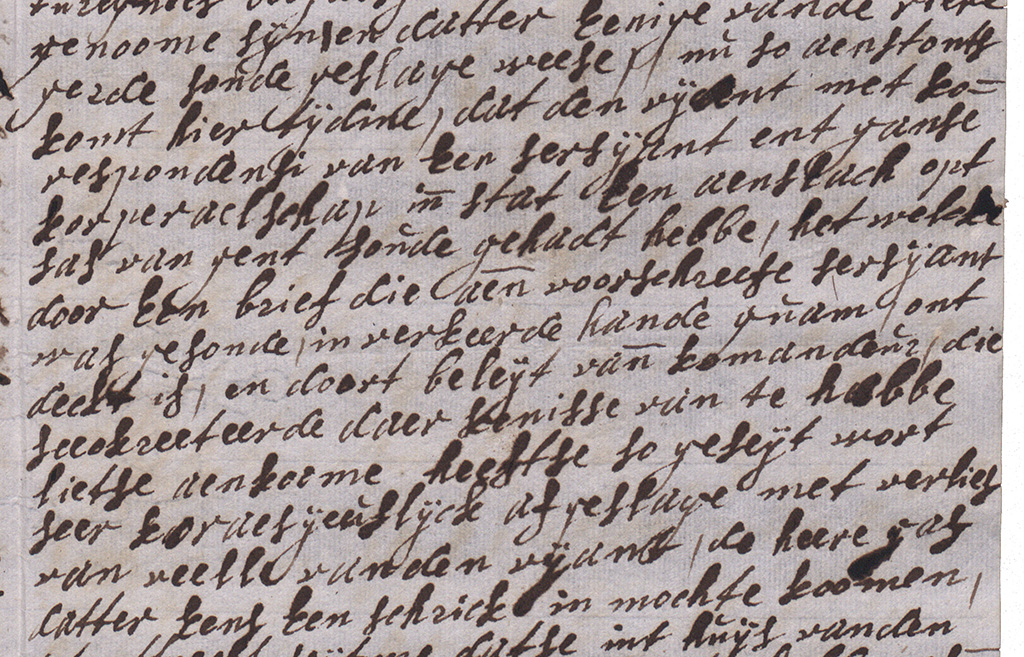 genoome sijn en datter eenige vande viere
verde soude geslage weese, nu so aenstonts
komt hier tijdine, dat den vijant met ko=
respondensi van een sersijant ent ganse
korperaelschap in stat een aenslach opt
sas van gent soude gehadt hebbe, het welke
door een brief die aen voorschreefe sersijant
was gesonde, in verkeerde hande quam, ont
deckt is, en doort beleijt van komandeur, die
seeckreeteerde daer kenisse van te hebbe
lietse aenkoome heeftse so geseijt wort
seer koraesyeuslijck afgeslage met verlies
van veelle vanden vijant, de heere gaf
datter eens een schrick in mochte koomen,
datse int huijs vanden